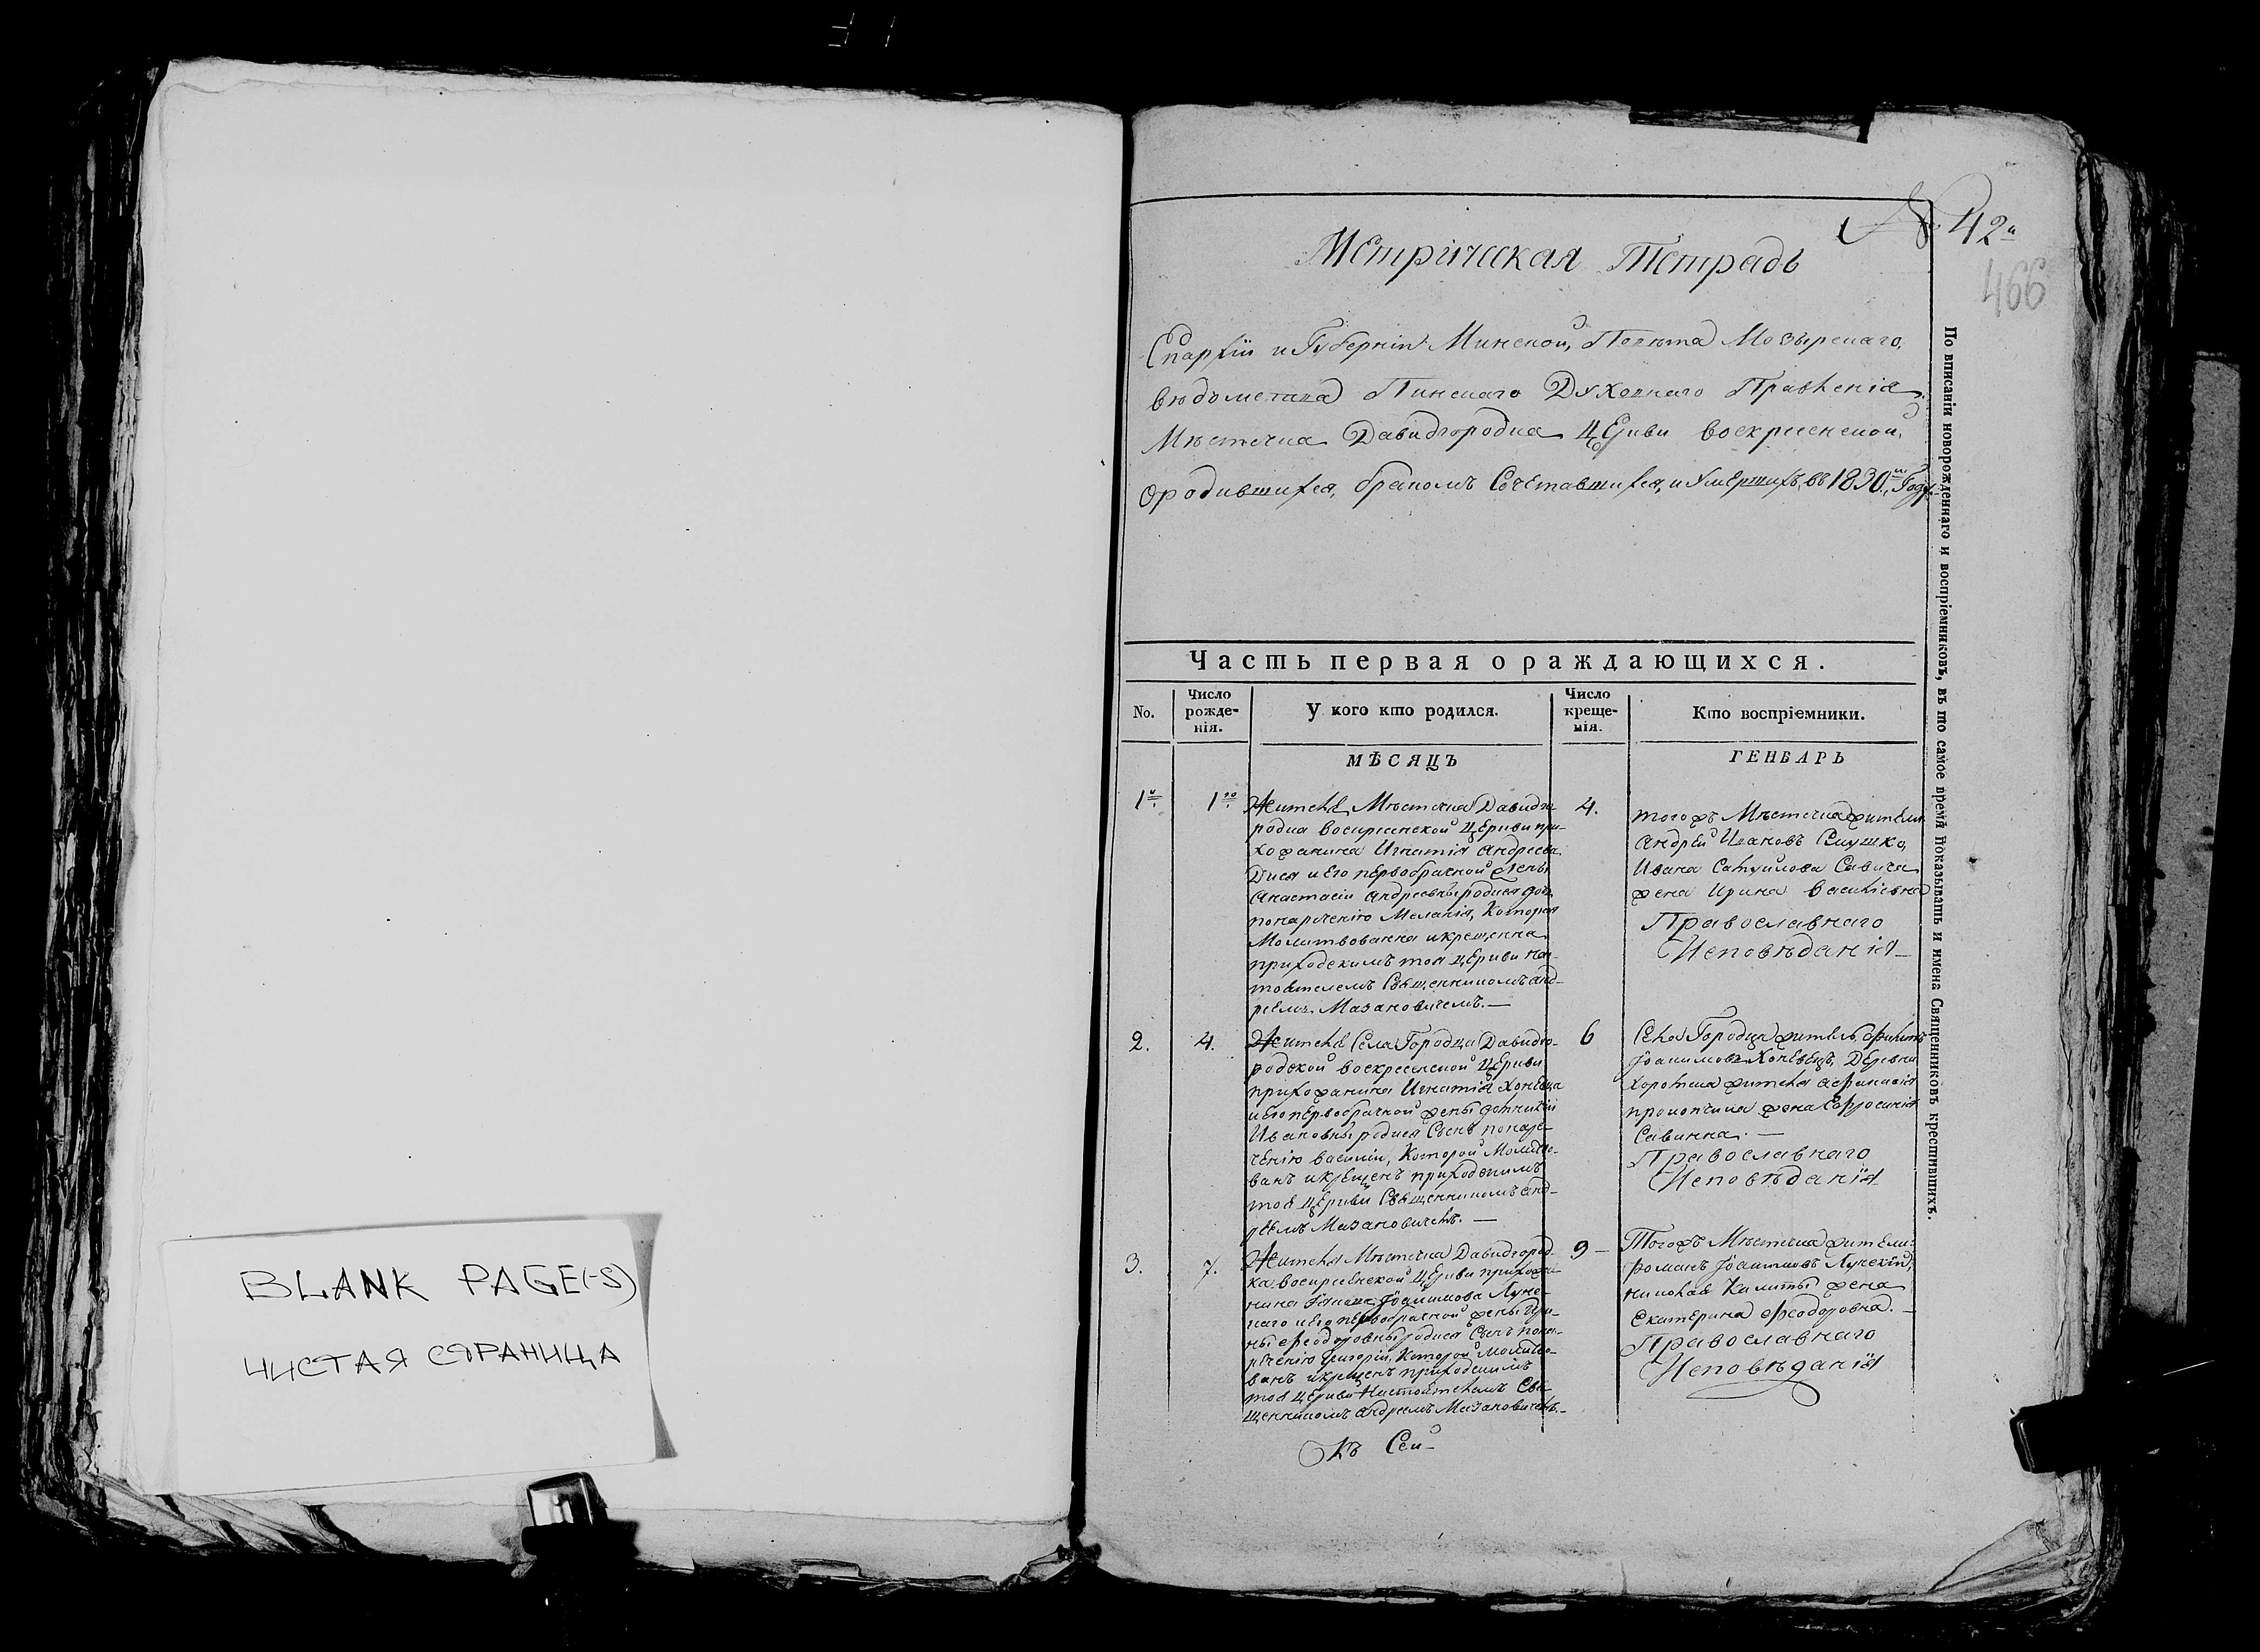 BLANK PAGE(-S)
ЧИСТАЯ СТРАНИЦА
№ 42й
466
Метрическая Тетрадь
Епархіи и Губерніи Минской, Повѣта Мозырскаго,
вѣдомства Пинскаго Духовнаго Правленія
Мѣстечка Давидгородка Церкви воскресенской,
Ородившихся, бракомъ Сочетавшихся, и Умершихъ, въ 1830м Году
Часть первая о раждающихся.
No.
Число рожде-
нія.
У кого кто родился.
Число
креще-
нія.
Кто воспріемники.
МѢСЯЦЪ
ГЕНВАРЬ
1й
1го
Жителя Мѣстечка Давидго
родка воскресенской Церкви при-
хожанина Игнатія Андреева
и Его первобрачной жены
Анастасіи Андреевны родися дочь
понареченію Меланія, Которая
Молитвованна икрещенна
приходскимъ тоя Церкви нас-
тоятелемъ Священникомъ анд-
реемъ Мазановичемъ. —
4.
тогожъ Мѣстечка жители
Андрей Ивановъ
Ивана Самуйлова Савича
жена Ирина василіевна
Православнаго
Исповѣданія —
2.
4.
Жителя Села Городца Давидго-
родской воскресенской Церкви
прихожанина Игнатія
иЕго первобрачной жены
Ивановны родися Сынъ понаре-
ченію василій, Которой Молитво-
ванъ икрещенъ приходскимъ
тоя Церкви Священникомъ анд-
реемъ Мазановичемъ. —
6
Села Городца житель
Іоакимовъ Деревни
Хоромска жителя афанасія
прокопчика жена Евфросинія
Савинна. —
Православнаго
Исповѣданія
3.
7.
Жителя Мѣстечка Давидгород-
ка воскресенской Церкви прихожа-
нина Іоакимова
иЕго первобрачной жены Ири-
ны Феодоровны родися Сынъ пона-
реченію Григорій, Которой Молитво-
ванъ икрещенъ приходскимъ
тоя Церкви Настоятелемъ Свя-
щенникомъ андреемъ Мазановичемъ. —
9 —
Тогожъ Мѣстечка жители:
романъ Іоакимовъ
николая Калиты жена
Екатерина Феодоровна. —
Православнаго
Исповѣданія
Къ Сей —
По вписаніи новорожденнаго и воспріемниковъ, въ то самое время показывать и имена Священниковъ крестившихъ.